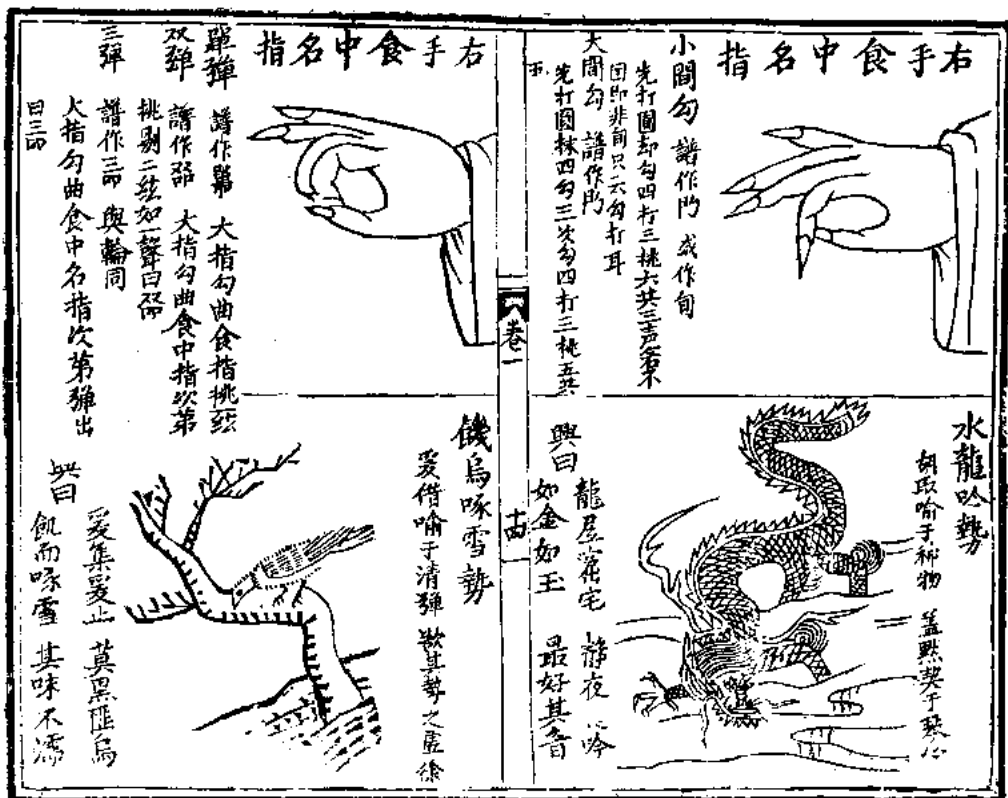 右手食中名指
小間勾 譜作 或作
先打圓却勾四打三挑六共三声若不
圓即非間只云勾打耳
大間勾 譜作
先打圓抹四勾三次勾四打三挑五共
五
水龍吟勢
胡取喻于神物 蓋默契于琴心
興曰 龍居窟宅 靜夜 吟
如金如玉 最好其音
卷一
十四
右手食中名指
單彈 譜作 大指勾曲食指挑弦
双弹 譜作 大指勾曲食中指次第
挑剔二弦如一聲曰
三彈 譜作 與輪同
大指勾曲食中名指次第彈出
曰三
饑烏啄雪勢
爰借喻于清彈 勢之
興曰 爰集爰止 莫黑匪烏
飢而啄雪 其味不濡